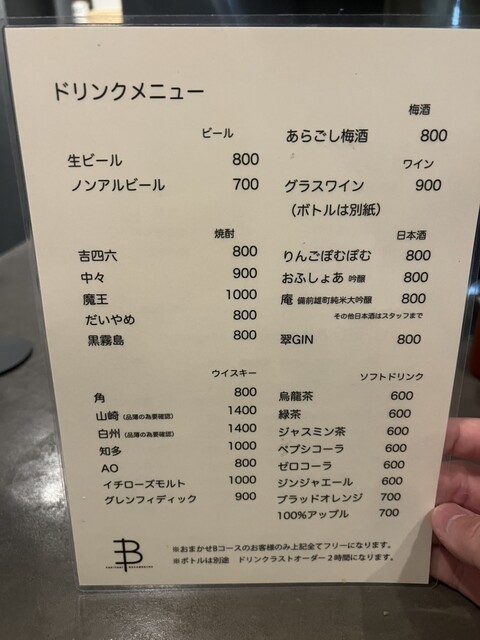 ドリンクメニュー
ビール
生ビール 800
ノンアルビール 700
焼酎
吉四六 800
中々 900
魔王 1000
だいやめ 800
黒霧島 800
ウイスキー
角 800
山崎（品薄の為要確認） 1400
白州（品薄の為要確認） 1400
知多 1000
AO 800
イチローズモルト 1000
グレンフィディック 900
梅酒
あらごし梅酒 800
ワイン
グラスワイン 900
（ボトルは別紙）
日本酒
りんごぽむぽむ 800
おふしょあ 吟醸 800
庵 備前雄町純米大吟醸 800
その他日本酒はスタッフまで
翠GIN 800
ソフトドリンク
烏龍茶 600
緑茶 600
ジャスミン茶 600
ペプシコーラ 600
ゼロコーラ 600
ジンジャエール 600
ブラッドオレンジ 700
100%アップル 700
※おまかせBコースのお客様のみ上記全てフリーになります。
※ボトルは別途 ドリンクラストオーダー2時間になります。